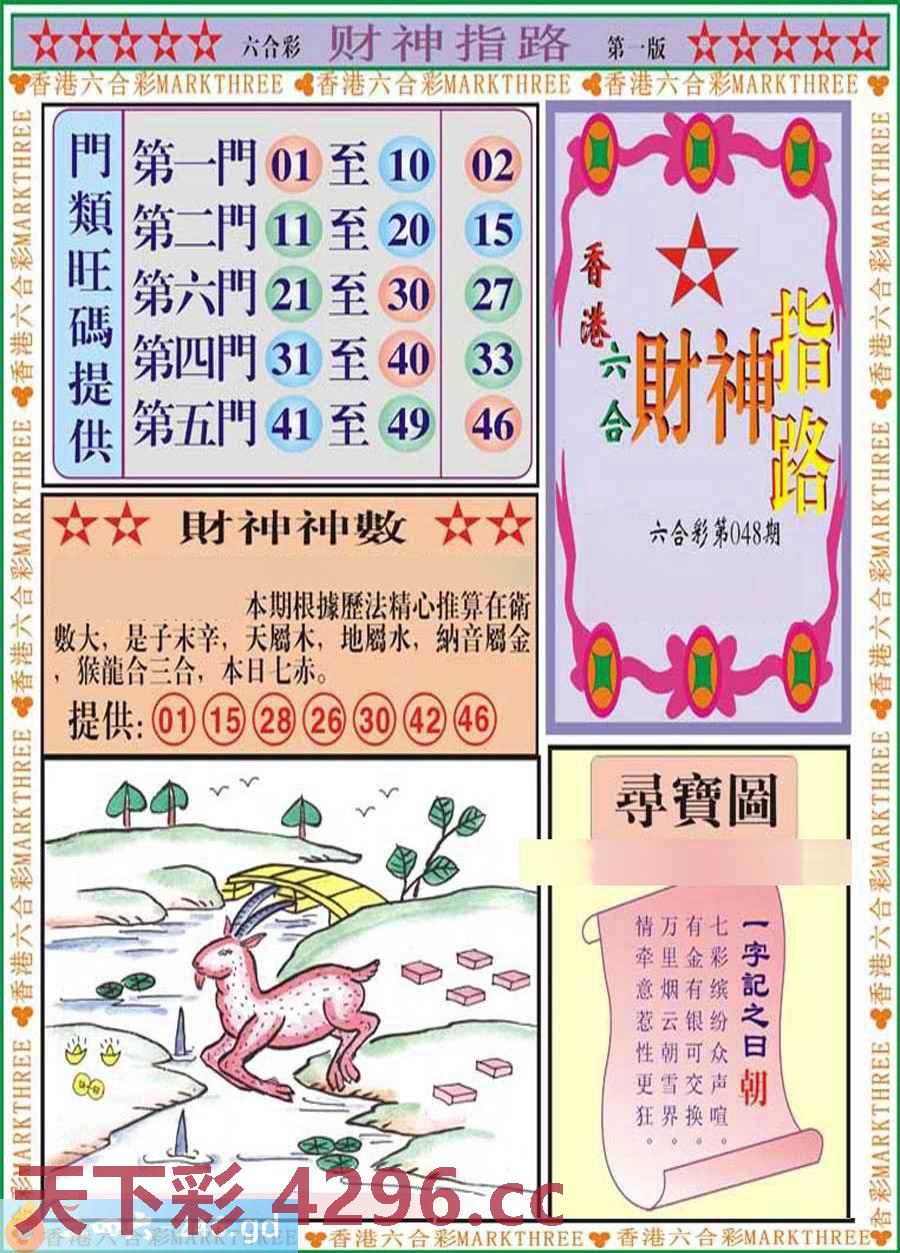 六合彩 财神指路 第一版
香港六合彩MARKTHREE 香港六合彩MARKTHREE 香港六合彩MARKTHREE
門類旺碼提供
第一門 01 至 10 02
第二門 11 至 20 15
第六門 21 至 30 27
第四門 31 至 40 33
第五門 41 至 49 46
香港六合
財神指路
六合彩第048期
財神神數
本期根據歷法精心推算在衛
數大，是子末辛，天屬木，地屬水，納音屬金
，猴龍合三合，本日七赤。
提供: 01 15 28 26 30 42 46
尋寶圖
一字記之曰 朝
七彩缤纷众声喧。
有金有银可交换。
万里烟云朝雪界。
情牵意惹性更狂。
天下彩 4296.cc
香港六合彩MARKTHREE 香港六合彩MARKTHREE 香港六合彩MARKTHREE